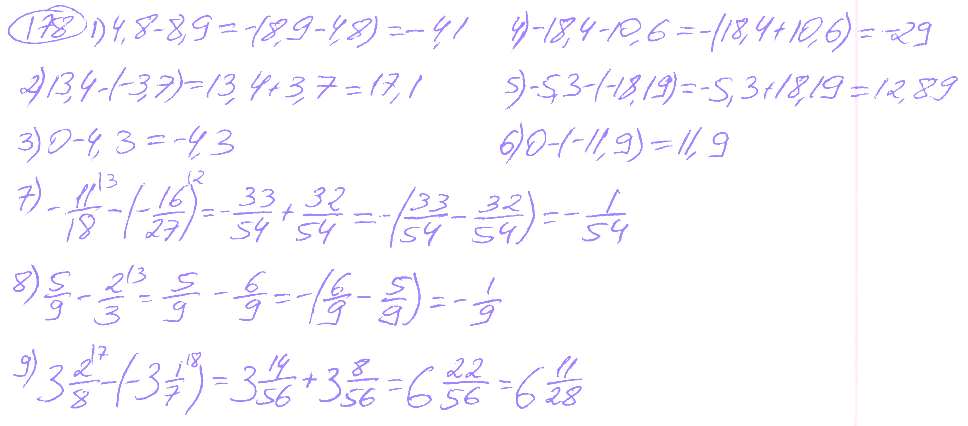 178 1) 4,8-8,9=-(8,9-4,8)=-4,1 4) -18,4-10,6=-(18,4+10,6)=-29
2) 13,4-(-3,7)=13,4+3,7=17,1 5) -5,3-(-18,19)=-5,3+18,19=12,89
3) 0-4,3=-4,3 6) 0-(-11,9)=11,9
7) -11/18 |3 -(-16/27 |2)=-33/54+32/54=-(33/54-32/54)=-1/54
8) 5/9-2/3 |3=5/9-6/9=-(6/9-5/9)=-1/9
9) 3 2/8 |7-(-3 1/7 |8)=3 14/56+3 8/56=6 22/56=6 11/28